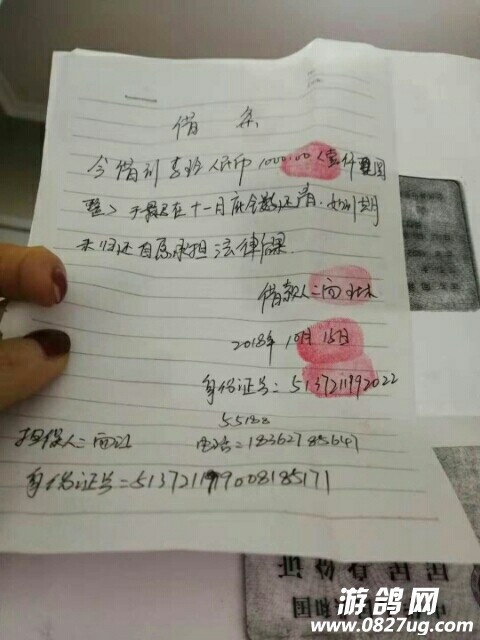 借条
今借到 人民币1000.00(壹仟圆
整)于最迟在十一月底全数还清.如到期
未归还自愿承担法律后果
借款人:向
2018年10月15日
身份证号:5137211992022
担保人:向江 电话=18362785647
身份证号=513721199008185171
游鸽网
www.0827ug.com